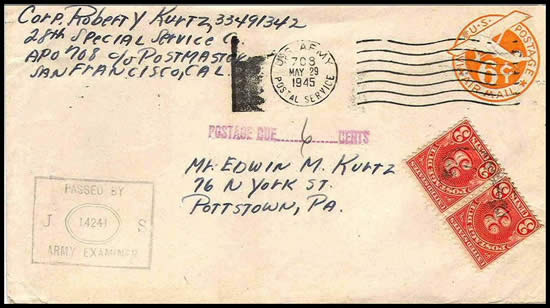 Corp. Robert Y Kurtz, 33491342
28th Special Service Co.
APO 708 c/o Postmaster
San Francisco, Cal.
U.S. ARMY
708
MAY 29
1945
POSTAL SERVICE
U.S. POSTAGE
6¢
VIA AIR MAIL
POSTAGE DUE 6 CENTS
Mr. Edwin M. Kurtz
76 N York St.
Pottstown, Pa.
PASSED BY
J 14241 S
ARMY EXAMINER
POSTAGE DUE
3
POSTAGE DUE
3